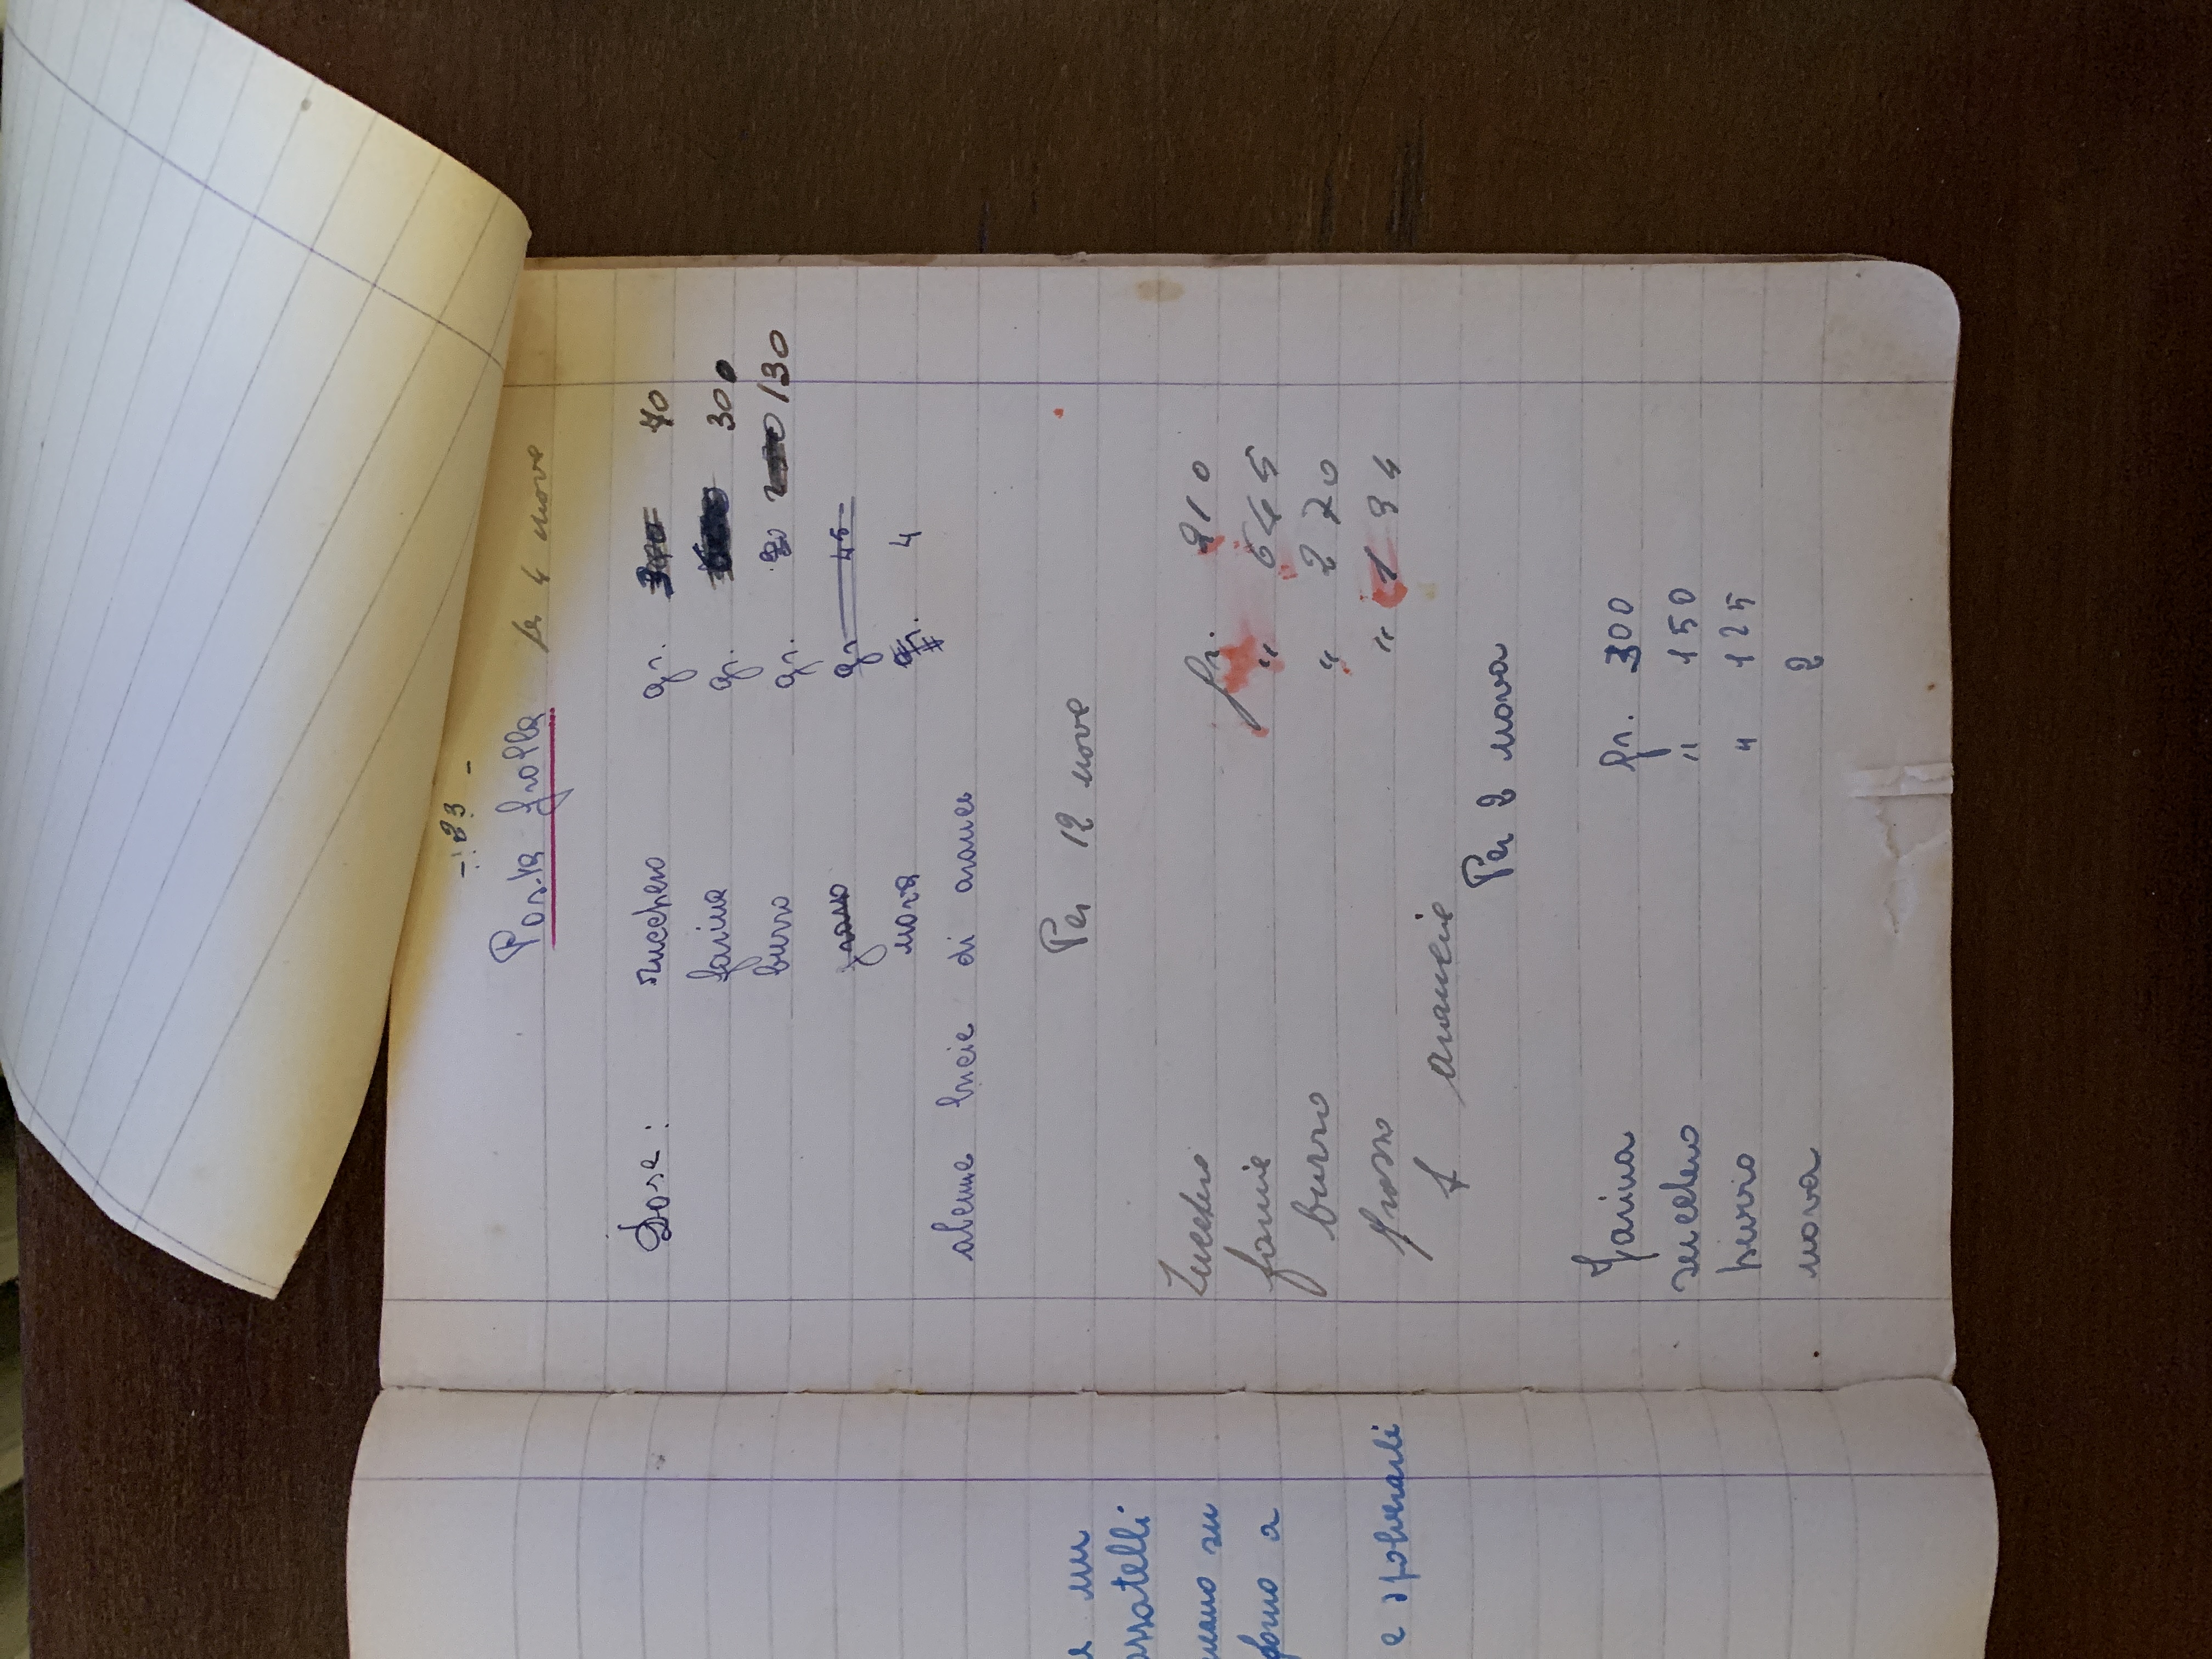 e un
assatelli
gnano su
forno a
e spolverarli
- 23 -
Pasta frolla per 4 uova
Dose: zucchero gr. 70
farina gr. 300
burro gr. 130
grasso gr 45
uova gr. 4
alcune bucie di arance
Per 12 uova
Zucchero gr. 210
farine " 645
burro " 270
grasso " 134
1 arancie
Per 2 uova
Farina gr. 300
zucchero " 150
burro " 125
uova 2